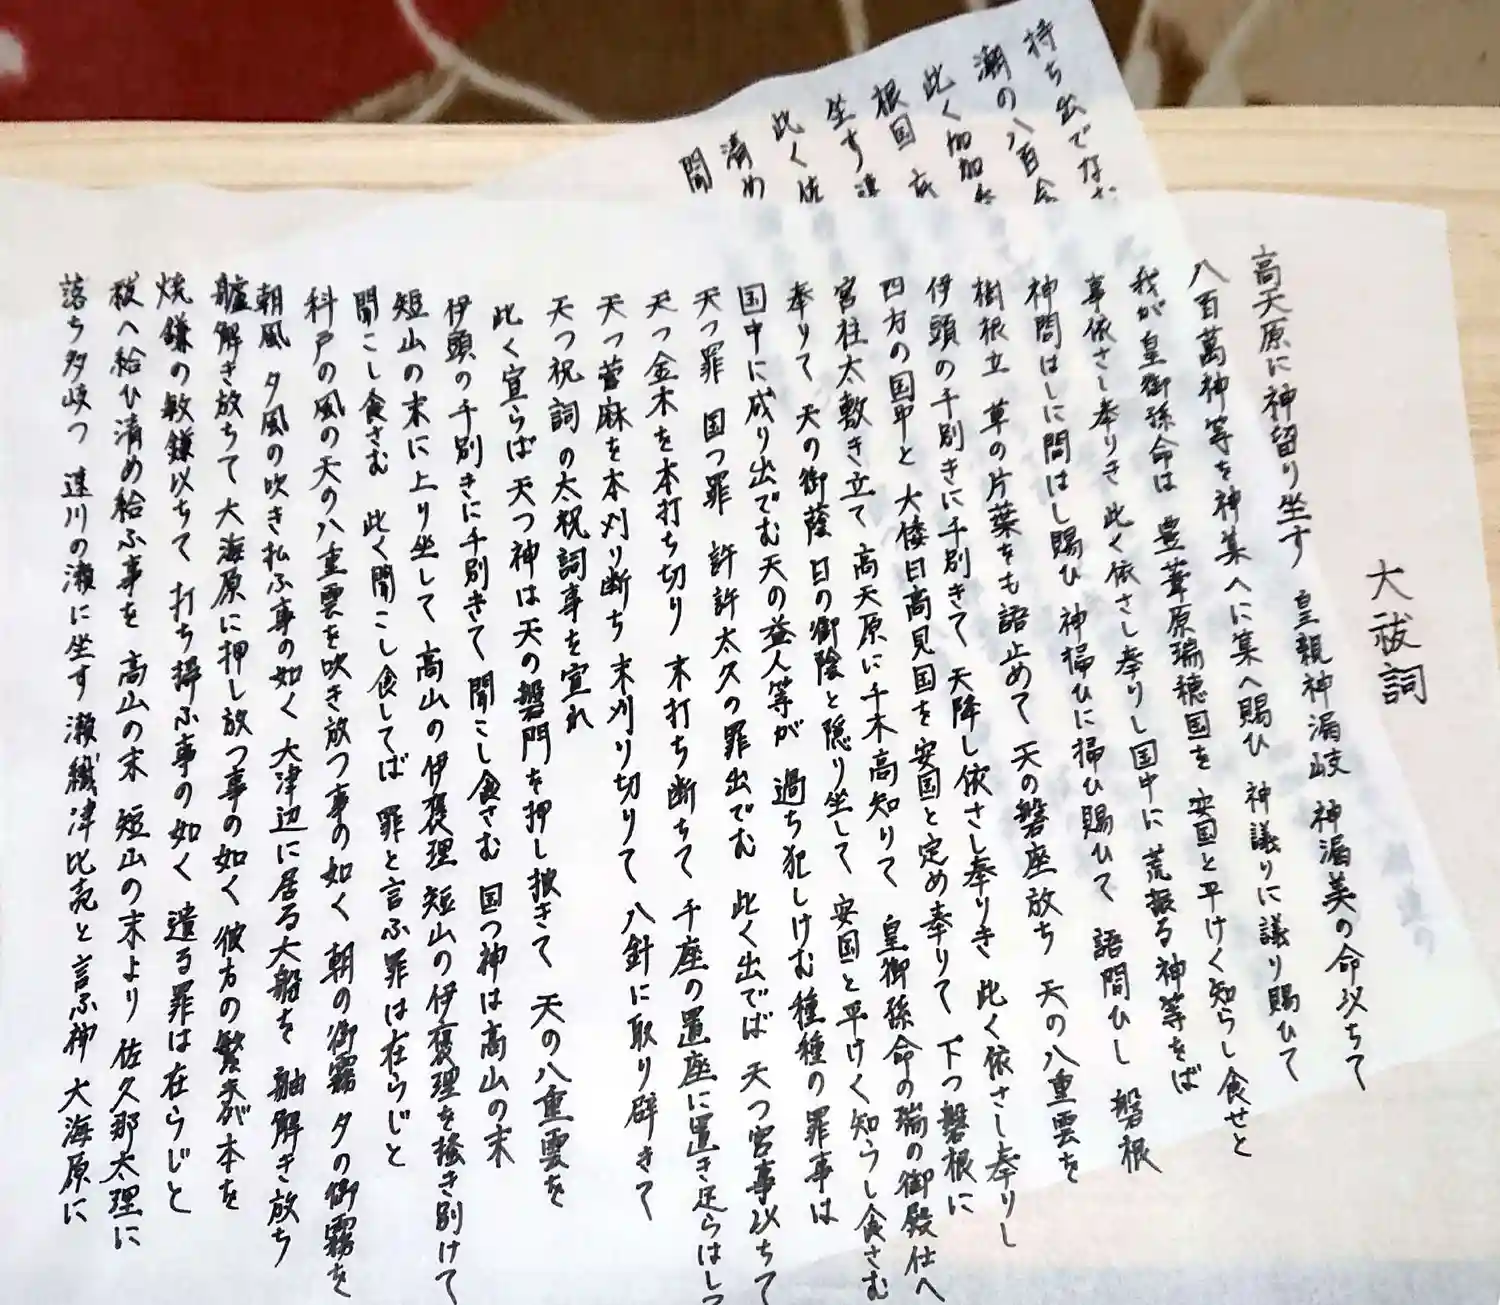 大祓詞
高天原に神留り坐す 皇親神漏岐 神漏美の命以ちて
八百萬神等を神集へに集へ賜ひ 神議りに議り賜ひて
我が皇御孫命は 豊葦原瑞穂国を 安国と平けく知らし食せと
事依さし奉りき 此く依さし奉りし国中に 荒振る神等をば
神問はしに問はし賜ひ 神掃ひに掃ひ賜ひて 語問ひし 磐根
樹根立 草の片葉をも語止めて 天の磐座放ち 天の八重雲を
伊頭の千別きに千別きて 天降し依さし奉りき 此く依さし奉りし
四方の国中と 大倭日高見国を安国と定め奉りて 下つ磐根に
宮柱太敷き立て 高天原に千木高知りて 皇御孫命の瑞の御殿仕へ
奉りて 天の御蔭 日の御陰と隠り坐して 安国と平けく知らし食さむ
国中に成り出でむ天の益人等が 過ち犯しけむ種種の罪事は
天つ罪 国つ罪 許許太久の罪出でむ 此く出でば 天つ宮事以ちて
天つ金木を本打ち切り 末打ち断ちて 千座の置座に置き足らはして
天つ菅麻を本刈り断ち 末刈り切りて 八針に取り辟きて
天つ祝詞の太祝詞事を宣れ
此く宣らば 天つ神は天の磐門を押し披きて 天の八重雲を
伊頭の千別きに千別きて 聞こし食さむ 国つ神は高山の末
短山の末に上り坐して 高山の伊褒理 短山の伊褒理を掻き別けて
聞こし食さむ 此く聞こし食してば 罪と言ふ罪は在らじと
科戸の風の天の八重雲を吹き放つ事の如く 朝の御霧 夕の御霧を
朝風 夕風の吹き払ふ事の如く 大津辺に居る大船を 舳解き放ち
艫解き放ちて 大海原に押し放つ事の如く 彼方の繁木が本を
焼鎌の敏鎌以ちて 打ち掃ふ事の如く 遺る罪は在らじと
祓へ給ひ清め給ふ事を 高山の末 短山の末より 佐久那太理に
落ち多岐つ 速川の瀬に坐す瀬織津比売と言ふ神 大海原に
持ち出でなむ
潮の八百会
此く加加
根国 底
生す速
此く佐
清め
聞